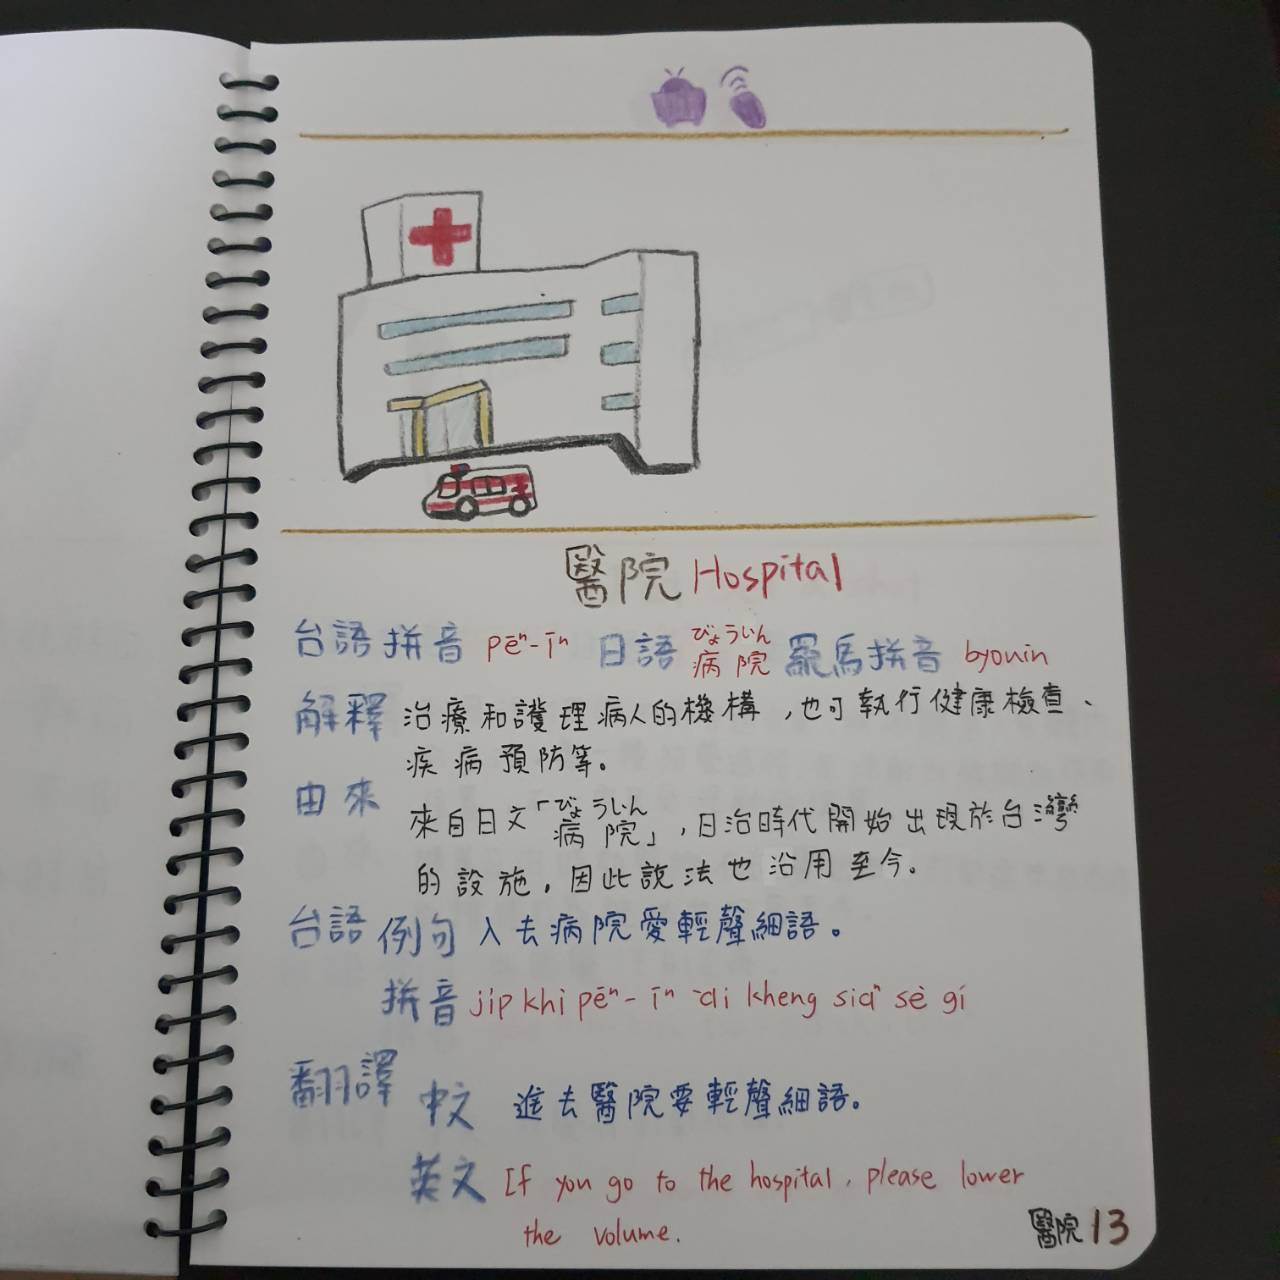 醫院 Hospital
台語拼音 pēⁿ-īⁿ 日語 病院 びょういん 羅馬拼音 byouin
解釋 治療和護理病人的機構,也可執行健康檢查、
疾病預防等。
由來 來自日文「病院 びょういん」,日治時代開始出現於台灣
的設施,因此說法也沿用至今。
台語例句 入去病院愛輕聲細語。
拼音 ji̍p khì pēⁿ-īⁿ ài kheng siaⁿ sè gí
翻譯 中文 進去醫院要輕聲細語。
英文 If you go to the hospital, please lower
the volume.
醫院 13